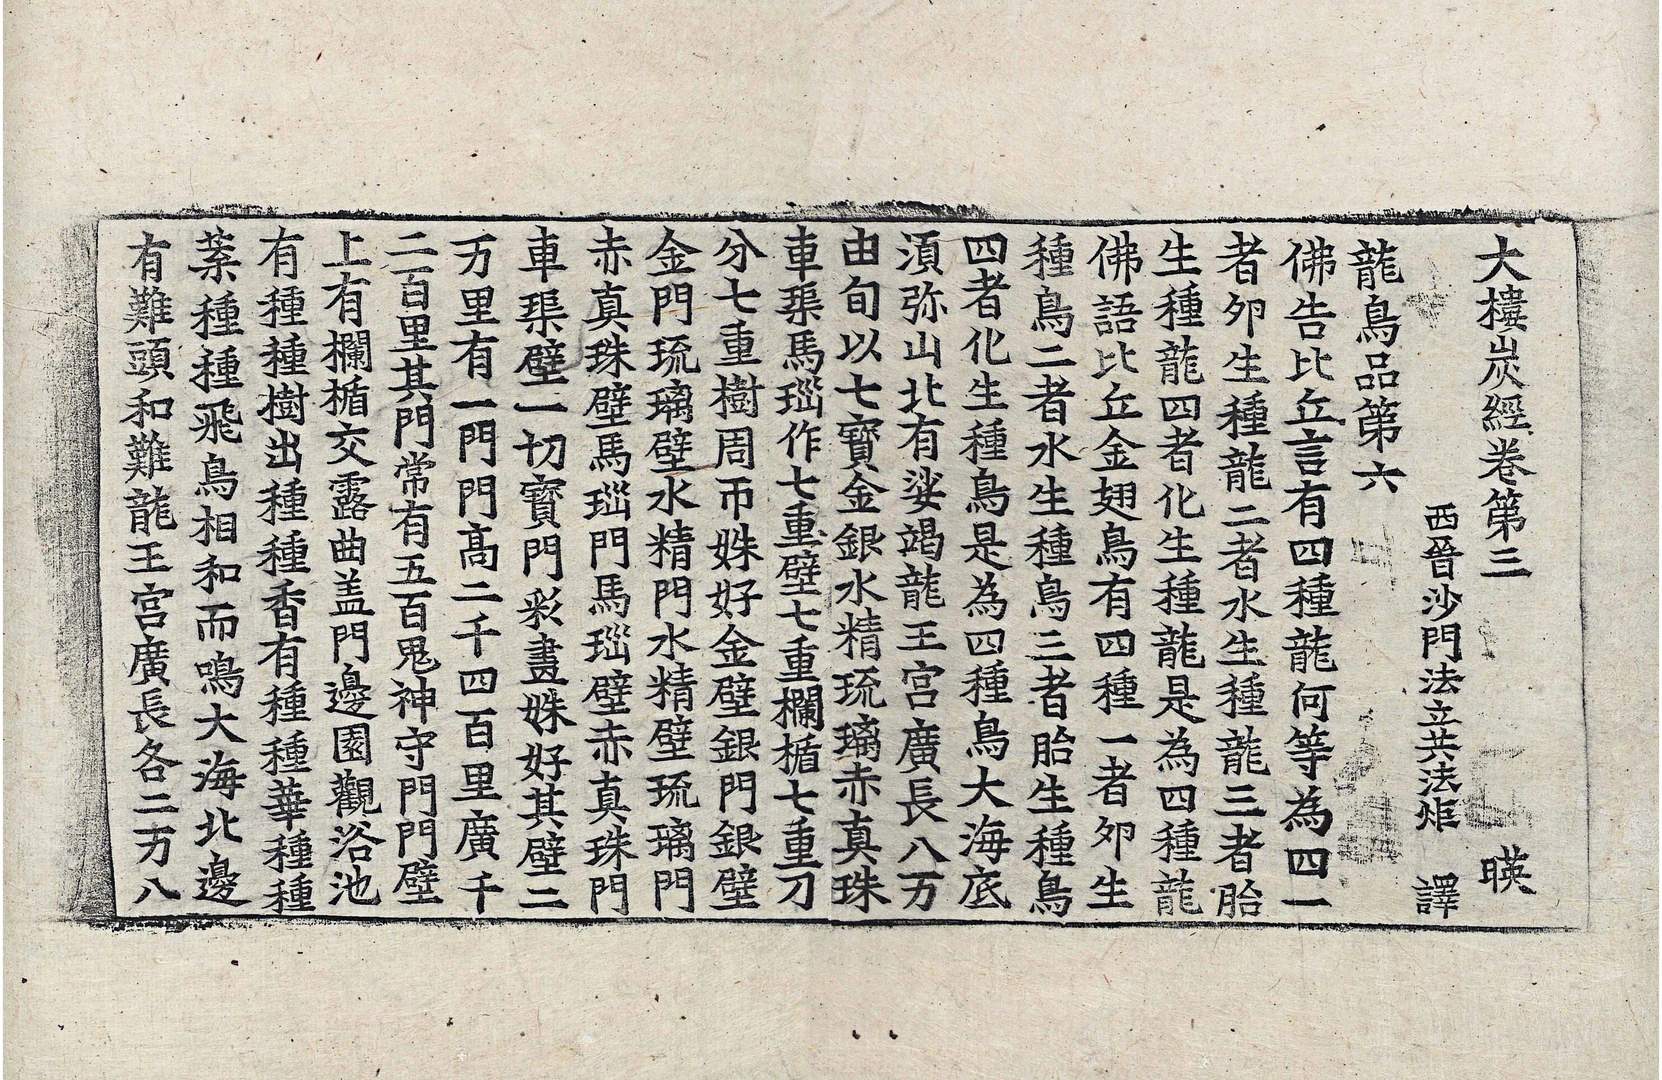 大樓炭經卷第三 暎
西晉沙門法立共法炬 譯
龍鳥品第六
佛告比丘言有四種龍何等為四一
者夘生種龍二者水生種龍三者胎
生種龍四者化生種龍是為四種龍
佛語比丘金翅鳥有四種一者夘生
種鳥二者水生種鳥三者胎生種鳥
四者化生種鳥是為四種鳥大海底
湏弥山北有娑竭龍王宮廣長八万
由旬以七寳金銀水精琉璃赤真珠
車𤦲馬瑙作七重壁七重欄楯七重刀
分七重樹周帀姝好金壁銀門銀壁
金門琉璃壁水精門水精壁琉璃門
赤真珠壁馬瑙門馬瑙壁赤真珠門
車𤦲壁一切寳門彩畫姝好其壁二
万里有一門門高二千四百里廣千
二百里其門常有五百鬼神守門門壁
上有欄楯交露曲盖門邊園觀浴池
有種種樹出種種香有種種華種種
葉種種飛鳥相和而鳴大海北邊
有難頭和難龍王宮廣長各二万八